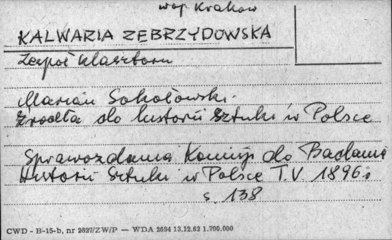 woj Kraków
KALWARIA ZEBRZYDOWSKA
Zespół klasztoru
Marian Sokołowski.
Źródła do historii Sztuki w Polsce
Sprawozdania Komisji do Badania
Historii Sztuki w Polsce T.V 1896 r
s. 138
CWD - B-15-b, nr 2027/ZW/P — WDA 2694 13.12.62 1.700.000